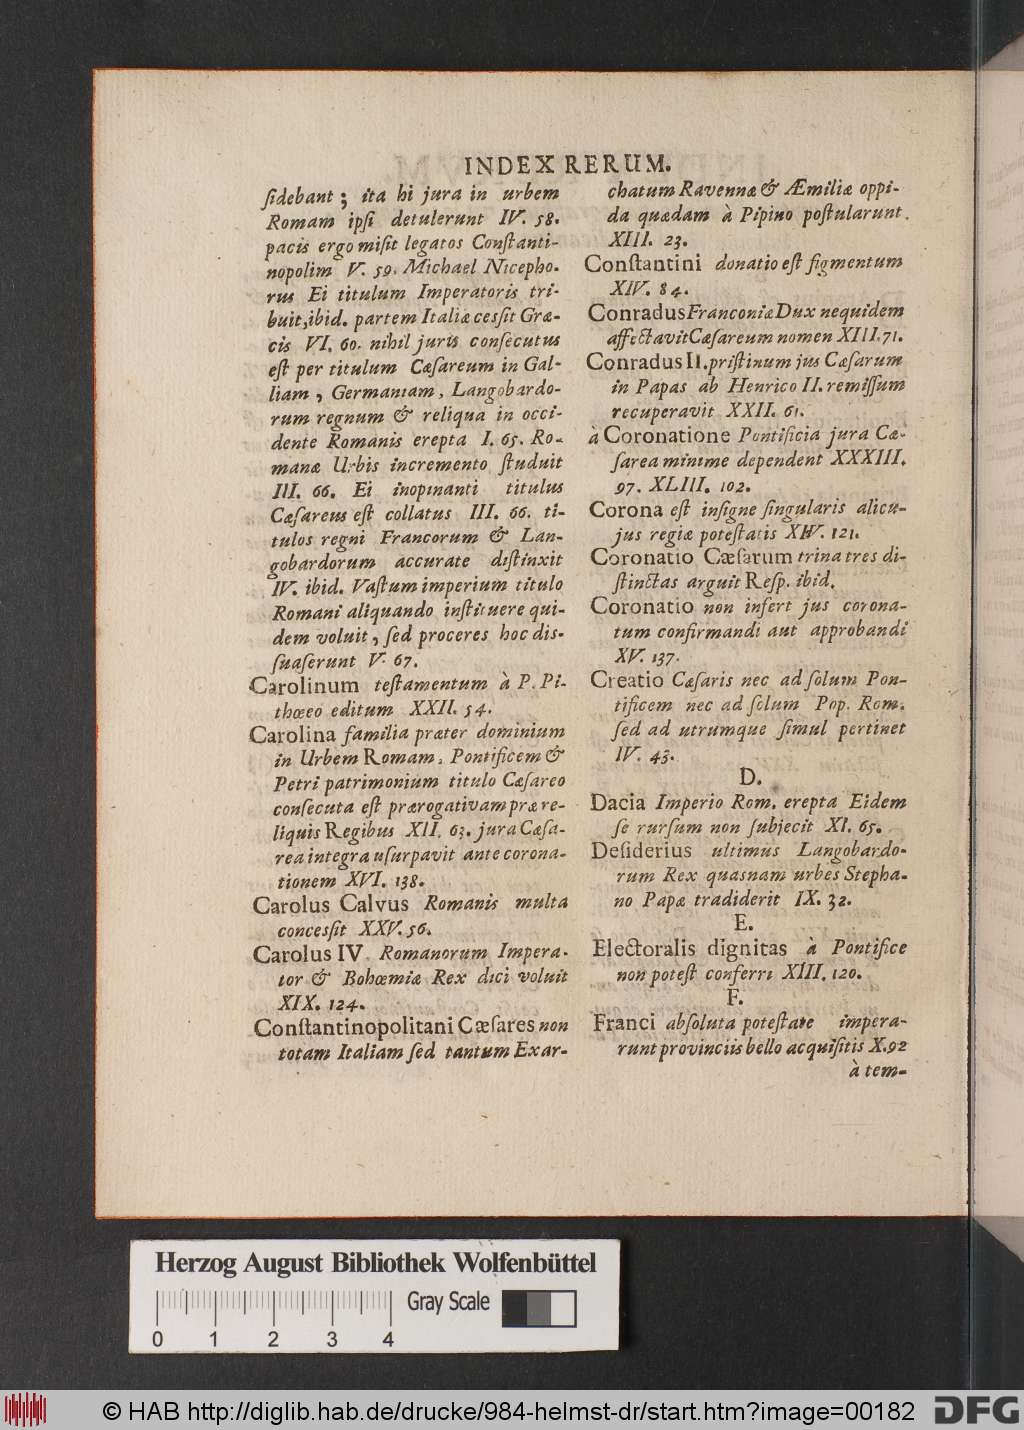 INDEX RERUM.
ſidebant; ita hi jura in urbem
Romam ipſi detulerunt IV. 58.
pacis ergo miſit legatos Conſtanti-
nopolim V. 59. Michael Nicepho-
rus Ei titulum Imperatoris tri-
buit, ibid. partem Italiæ ceſſit Græ-
cis VI. 60. nihil juris conſecutus
eſt per titulum Cæſareum in Gal-
liam, Germaniam, Langobardo-
rum regnum & reliqua in occi-
dente Romanis erepta I. 65. Ro-
manæ Urbis incremento ſtuduit
III. 66. Ei inopinanti titulus
Cæſareus eſt collatus III. 66. ti-
tulos regni Francorum & Lan-
gobardorum accurate diſtinxit
IV. ibid. Vaſtum imperium titulo
Romani aliquando inſtituere qui-
dem voluit, ſed proceres hoc dis-
ſuaſerunt V. 67.
Carolinum teſtamentum à P. Pi-
thœo editum XXII. 54.
Carolina familia præter dominium
in Urbem Romam, Pontificem &
Petri patrimonium titulo Cæſareo
conſecuta eſt prærogativam præ re-
liquis Regibus XII. 63. jura Cæſa-
rea integra uſurpavit ante corona-
tionem XVI. 138.
Carolus Calvus Romanis multa
conceſſit XXV. 56.
Carolus IV. Romanorum Impera-
tor & Bohœmiæ Rex dici voluit
XIX. 124.
Conſtantinopolitani Cæſares non
totam Italiam ſed tantum Exar-
chatum Ravennæ & Æmiliæ oppi-
da quædam à Pipino poſtularunt.
XIII. 23.
Conſtantini donatio eſt figmentum
XIV. 84.
Conradus Franconiæ Dux nequidem
affectavit Cæſareum nomen XIII. 71.
Conradus II. priſtinum jus Cæſarum
in Papas ab Henrico II. remiſſum
recuperavit XXII. 61.
à Coronatione Pontificia jura Cæ-
ſarea minime dependent XXXIII.
97. XLIII. 102.
Corona eſt inſigne ſingularis alicu-
jus regiæ poteſtatis XIV. 121.
Coronatio Cæſarum trina tres di-
ſtinctas arguit Reſp. ibid.
Coronatio non infert jus corona-
tum confirmandi aut approbandi
XV. 137.
Creatio Cæſaris nec ad ſolum Pon-
tificem nec ad ſolum Pop. Rom.
ſed ad utrumque ſimul pertinet
IV. 43.
D.
Dacia Imperio Rom. erepta Eidem
ſe rurſum non ſubjecit XI. 65.
Deſiderius ultimus Langobardo-
rum Rex quasnam urbes Stepha-
no Papæ tradiderit IX. 32.
E.
Electoralis dignitas à Pontifice
non poteſt conferri XIII. 120.
F.
Franci abſoluta poteſtate impera-
runt provinciis bello acquiſitis X. 92
à tem-
Herzog August Bibliothek Wolfenbüttel
Gray Scale
0 1 2 3 4
© HAB http://diglib.hab.de/drucke/984-helmst-dr/start.htm?image=00182
DFG